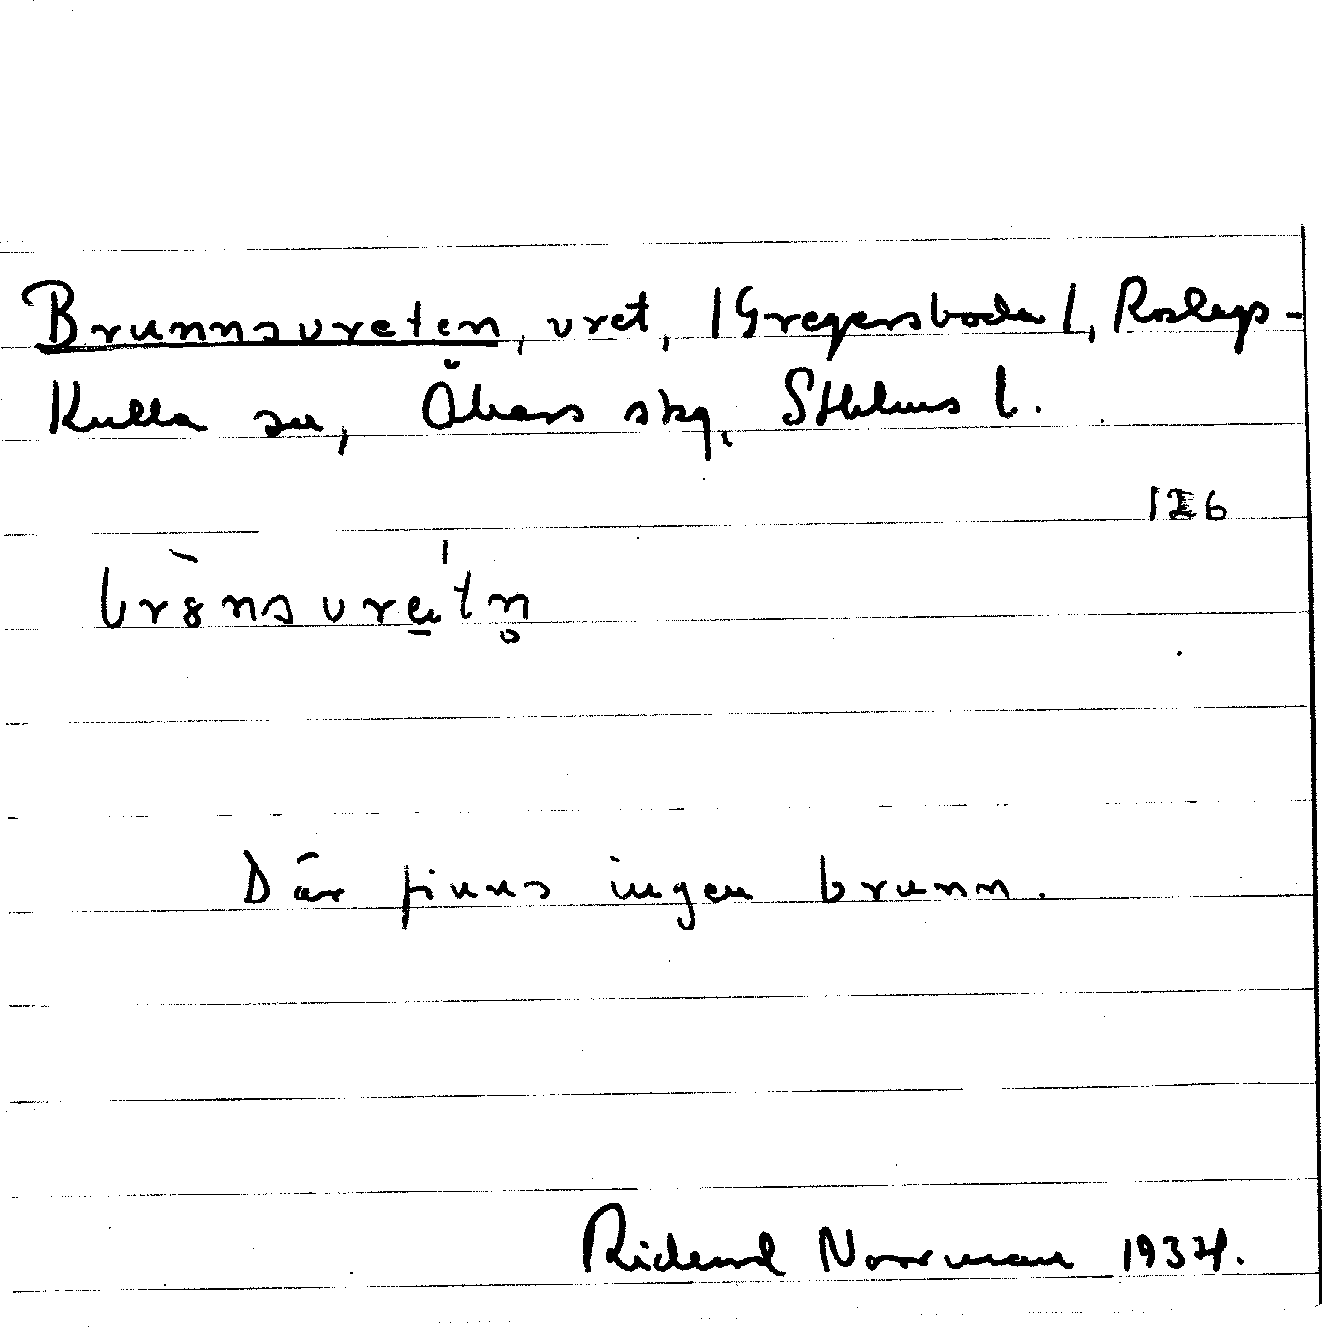 Brunnsvreten, vret, /Gregersboda/, Roslags-
Kulla sn, Åkers skg, Sthlms l.
126
Där finns ingen brunn.
Rickard Norrman 1934.